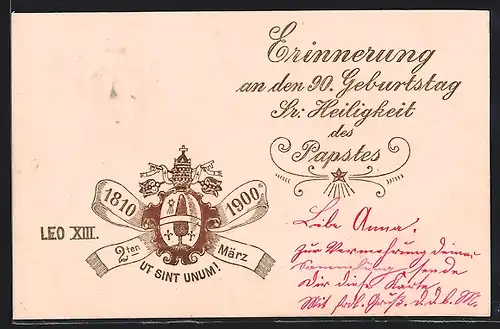 Erinnerung
an den 90. Geburtstag
Sr: Heiligkeit
des
Papstes
1810
1900
LEO XIII.
2ten März
UT SINT UNUM!
Liebe Anna.
Zur Vermehrung deiner
Sammlung sende
Dir diese Karte.
Mit Gruß